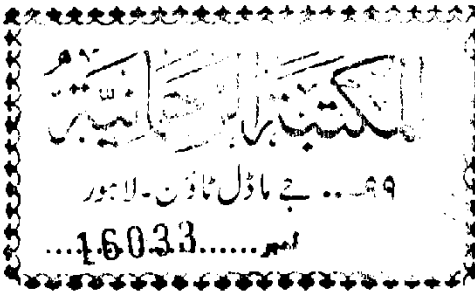 المکتبۃ الرحمانیۃ
۹۹... جے ماڈل ٹاؤن ۔ لاہور
نمبر......16033......